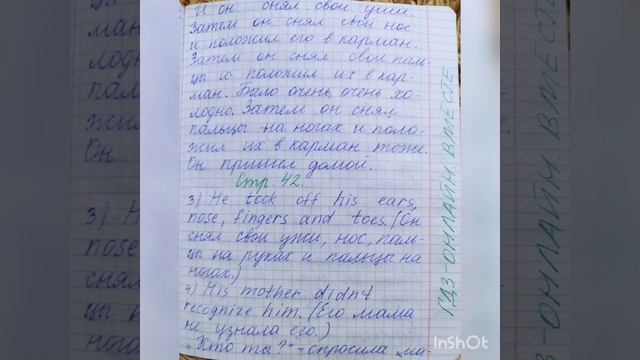 И он снял свои уши.
Затем он снял свой нос
и положил его в карман.
Затем он снял свои паль-
цы и положил их в кар-
ман. Было очень, очень хо-
лодно. Затем он снял
пальцы на ногах и поло-
жил их в карман тоже.
Он пришел домой.
Стр. 42.
3) He took off his ears,
nose, fingers and toes. (Он
снял свои ужи, нос, паль-
цы на руках и пальцы на
ногах.)
4) His mother didn't
recognize him. (Его мама
не узнала его.)
"Кто ты?" - спросила ма-
ГДЗ-ОНЛАЙН ВМЕСТЕ
InShOt